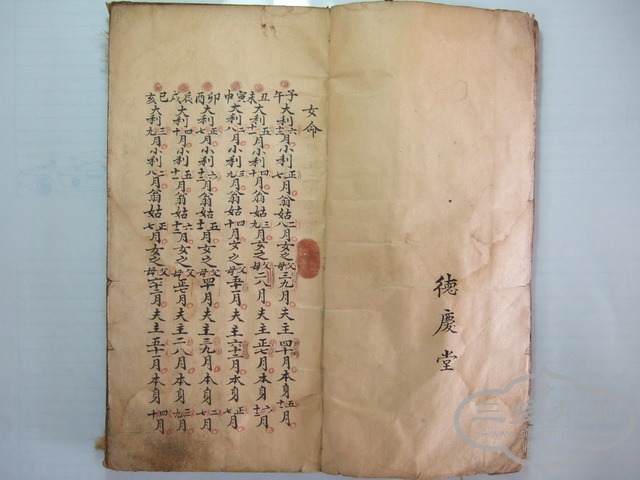 徳慶堂
女命
子午大利六十二月小利正七月翁姑二八月女之父母三九月夫主四十月本身五十一月
丑未大利五十一月小利四十月翁姑三九月女之父母二八月夫主正七月本身六十二月
寅申大利二八月小利三九月翁姑四十月女之父母五十一月夫主六十二月本身正七月
卯酉大利正七月小利六十二月翁姑五十一月女之父母四十月夫主三九月本身二月
辰戌大利四十月小利五十一月翁姑六十二月女之父母正七月夫主二八月本身三九月
巳亥大利三九月小利二八月翁姑正七月女之父母六十二月夫主五十一月本身四十月